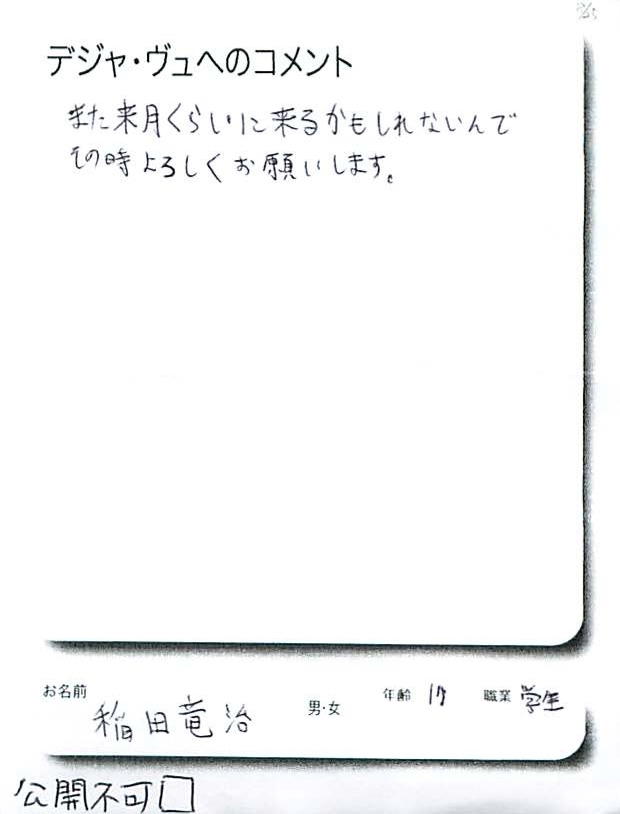 デジャ・ヴュへのコメント
また来月くらいに来るかもしれないんで
その時よろしくお願いします。
お名前 稲田竜治 男・女 年齢 17 職業 学生
公開不可□